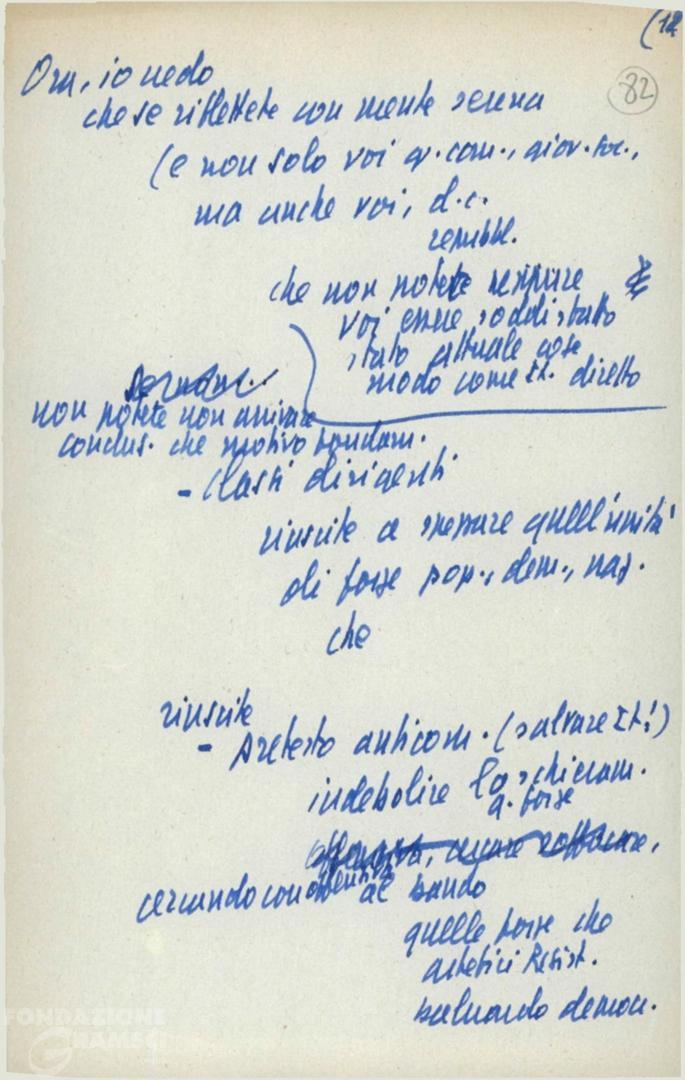 (12
82
Ora, io vedo
che se riflettete con mente serena
(e non solo voi gr. com., giov. soc.,
ma anche voi, d.c.
repubbl.
che non potete neppure
voi essere soddisfatto
stato attuale cose
modo come It. diretto
non potete non arrivare
conclus. che motivo fondam.
- Classi dirigenti
riuscite a spezzare quell'unità
di forze pop., dem., naz.
che
riuscite
- Pretesto anticom. (salvare It.!)
indebolire lo schieram.
q. forze
cercando con al bando
quelle forze che
artefici Resist.
baluardo democr.
FONDAZIONE
GRAMSCI